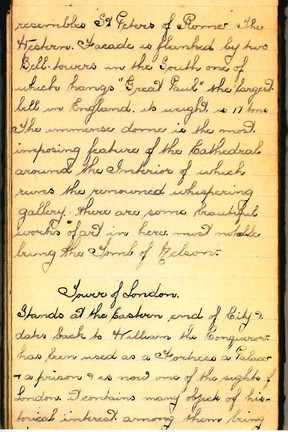 resembles St Peters of Rome The
Western. Facade is flanked by two
Bell-towers in the South one of
which hangs "Great Paul" the largest
bell in England. its weight is 17 tons
The immense dome is the most
imposing feature of the Cathedral
around the Interior of which
runs the renowned whispering
gallery. there are some beautiful
works of art in here most notable
being the Tomb of Nelson.
Tower of London.
Stands at the Eastern end of City &
dates back to William the Conqueror
has been used as a Fortress a Palace
& a prison & is now one of the sights of
London it contains many objets of his-
torical interest among them being